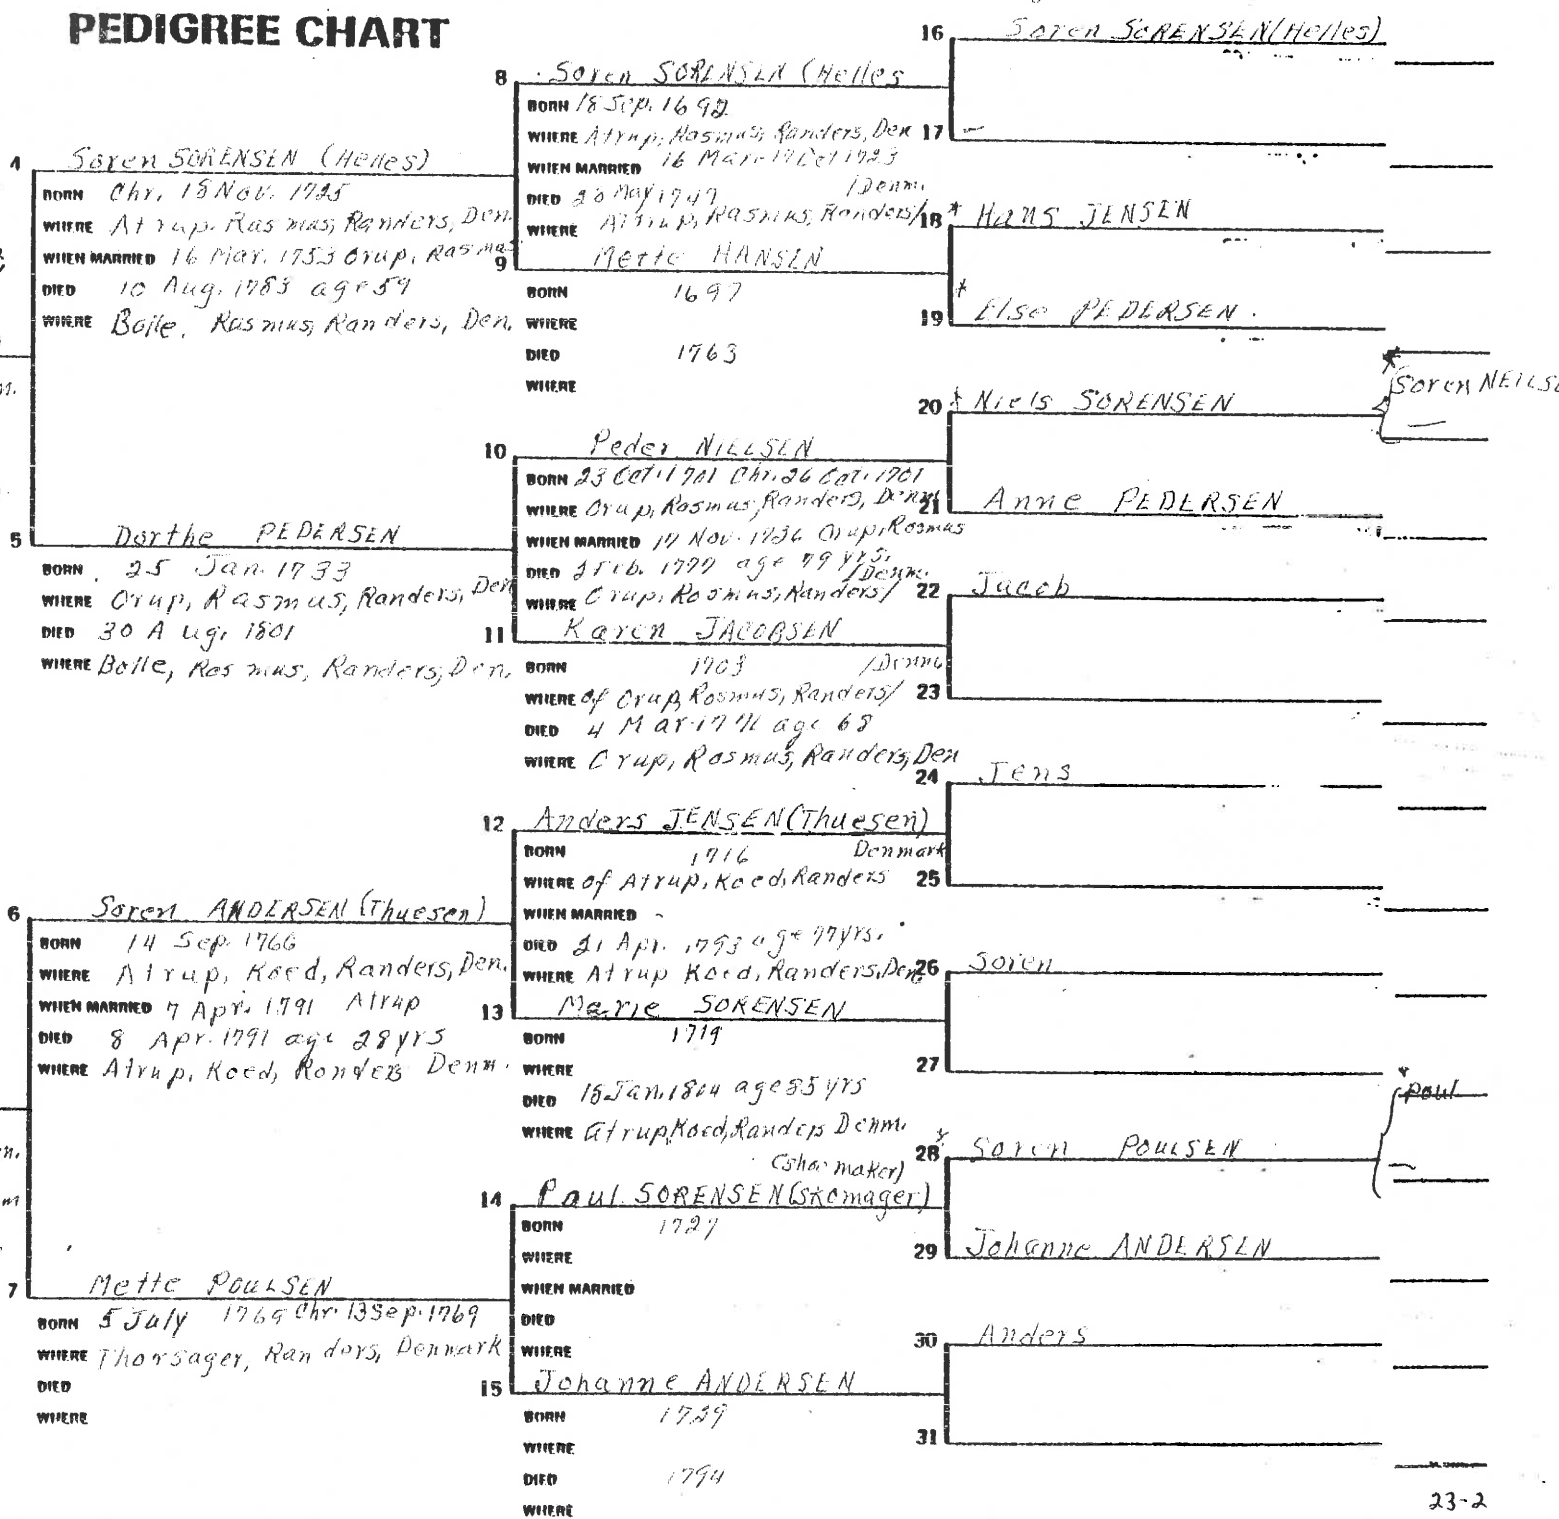 PEDIGREE CHART
4
Soren SORENSEN (Helles)
BORN Chr. 18 Nov. 1725
WHERE Atrup, Rasmus, Randers, Den.
WHEN MARRIED 16 Mar. 1753 Orup, Rasmus
DIED 10 Aug. 1783 age 59
WHERE Bolle, Rasmus, Randers, Den.
5
Dorthe PEDERSEN
BORN 25 Jan. 1733
WHERE Orup, Rasmus, Randers, Den
DIED 30 Aug. 1801
WHERE Bolle, Rasmus, Randers, Den.
6
Soren ANDERSEN (Thuesen)
BORN 14 Sep. 1766
WHERE Atrup, Koed, Randers, Den.
WHEN MARRIED 7 Apr. 1791 Atrup
DIED 8 Apr. 1791 age 28 yrs
WHERE Atrup, Koed, Randers Denm.
7
Mette POULSEN
BORN 5 July 1769 Chr. 13 Sep. 1769
WHERE Thorsager, Randers, Denmark
DIED
WHERE
8
Soren SORENSEN (Helles
BORN 18 Sep. 1692
WHERE Atrup, Rasmus, Randers, Den
WHEN MARRIED 16 Mar 17 Oct 1723
DIED 20 May 1747 /Denm.
WHERE Attrup, Rasmus, Randers/
9
Mette HANSEN
BORN 1697
WHERE
DIED 1763
WHERE
10
Peder NIELSEN
BORN 23 Oct. 1701 Chr. 26 Oct. 1701
WHERE Orup, Rasmus, Randers, Denm
WHEN MARRIED 17 Nov. 1726 Orup, Rosmus
DIED 2 Feb. 1777 age 79 yrs.
WHERE Orup, Rosmus, Randers/ /Denm.
11
Karen JACOBSEN
BORN 1703 /Denm.
WHERE of Orup, Rosmus, Randers/
DIED 4 Mar 1771 age 68
WHERE Orup, Rosmus, Randers, Den
12
Anders JENSEN (Thuesen)
BORN 1716 Denmark
WHERE of Atrup, Koed, Randers
WHEN MARRIED -
DIED 21 Apr. 1793 age 77 yrs.
WHERE Atrup Koed, Randers, Den
13
Marie SORENSEN
BORN 1719
WHERE
DIED 18 Jan. 1804 age 85 yrs
WHERE Atrup, Koed, Randers Denm.
(shoemaker)
14
Paul SORENSEN (Skomager)
BORN 1727
WHERE
WHEN MARRIED
DIED
WHERE
15
Johanne ANDERSEN
BORN 1729
WHERE
DIED 1794
WHERE
16
Soren SORENSEN (Helles)
17
18 * Hans JENSEN
19 * Else PEDERSEN
20 * Niels SORENSEN
Soren NEILS
21 Anne PEDERSEN
22 Jacob
23
24 Jens
25
26 Soren
27
Poul
28 Soren POULSEN
29 Johanne ANDERSEN
30 Anders
31
23-2